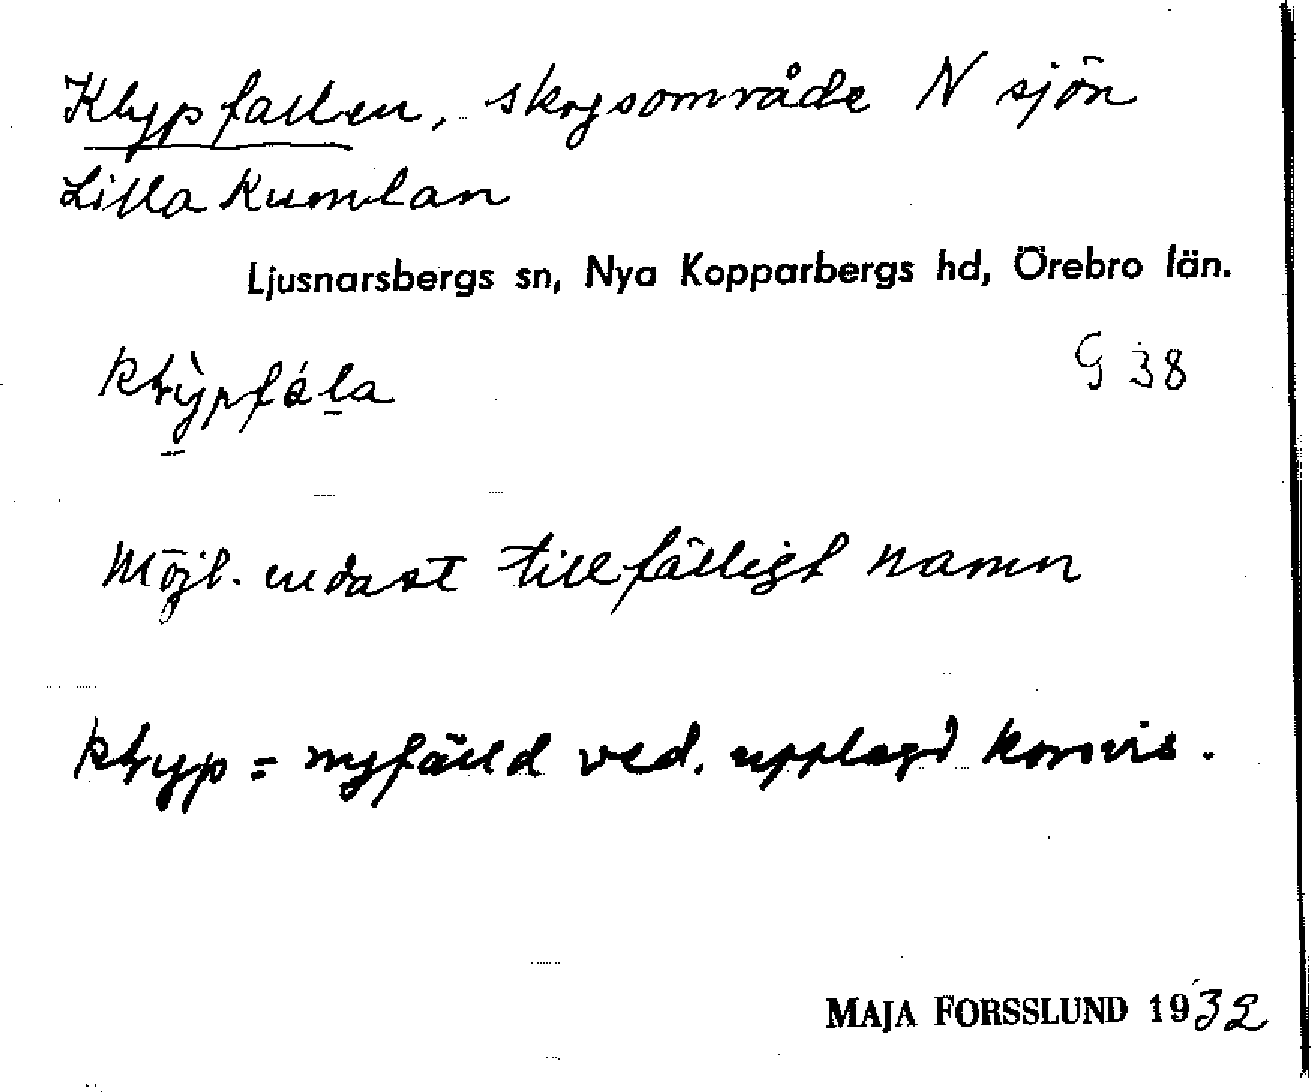 Klypfallen, skogsområde N sjön
Lilla Kumlan
Ljusnarsbergs sn, Nya Kopparbergs hd, Örebro län.
klỳpfála
G 38
Möjl. endast tillfälligt namn
klyp = nyfälld ved. upplagd korsvis.
MAJA FORSSLUND 1932